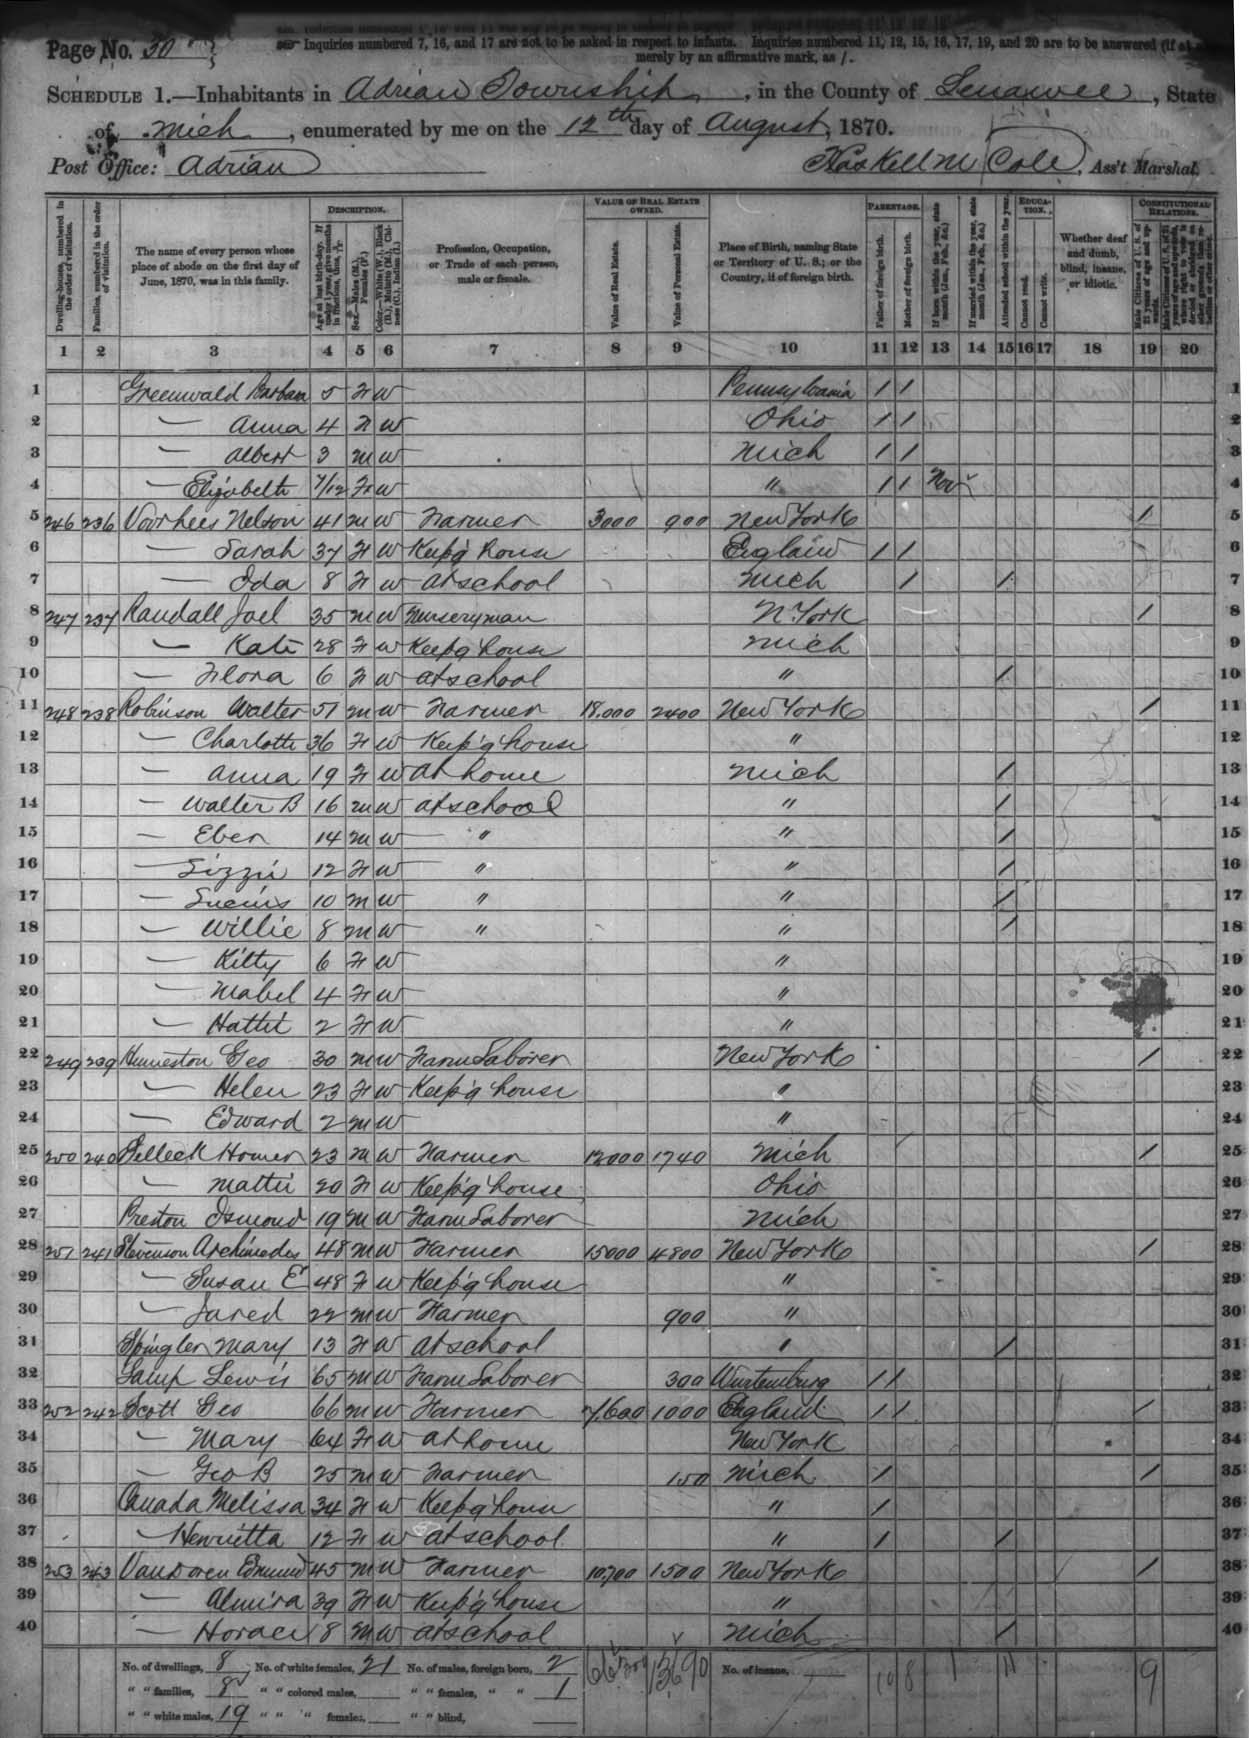 Page No. 30
Inquiries numbered 7, 16, and 17 are not to be asked in respect to infants. Inquiries numbered 11, 12, 15, 16, 17, 19, and 20 are to be answered (if at
merely by an affirmative mark, as /.
SCHEDULE 1.—Inhabitants in Adrian Township, in the County of Lenawee, State
of Mich, enumerated by me on the 12th day of August, 1870.
Post Office: Adrian Haskell M Cole, Ass't Marshal.
DESCRIPTION. VALUE OF REAL ESTATE OWNED. PARENTAGE. EDUCATION. CONSTITUTIONAL RELATIONS.
Dwelling-houses, numbered in the order of visitation. Families, numbered in the order of visitation. The name of every person whose place of abode on the first day of June, 1870, was in this family. Age at last birth-day. If under 1 year, give months in fractions, thus, Sex.—Males (M.), Females (F.) Color.—White (W.), Black (B.), Mulatto (M.), Chinese (C.), Indian (I.) Profession, Occupation, or Trade of each person, male or female. Value of Real Estate. Value of Personal Estate. Place of Birth, naming State or Territory of U. S.; or the Country, if of foreign birth. Father of foreign birth. Mother of foreign birth. If born within the year, state month (Jan., Feb., &c.) If married within the year, state month (Jan., Feb., &c.) Attended school within the year. Cannot read. Cannot write. Whether deaf and dumb, blind, insane, or idiotic. Male Citizens of U. S. of 21 years of age and upwards.
1 2 3 4 5 6 7 8 9 10 11 12 13 14 15 16 17 18 19 20
1 Greenwald Barbara 5 F W Pennsylvania / / 1
2 — Anna 4 F W Ohio / / 2
3 — Albert 3 M W Mich / / 3
4 — Elizabeth 7/12 F W " / / Nov 4
5 246 236 Voorhees Nelson 41 M W Farmer 3000 900 New York / 5
6 — Sarah 37 F W Keep'g house England / / 6
7 — Ida 8 F W At school Mich / / 7
8 247 237 Randall Joel 35 M W Nurseryman N. York / 8
9 — Kate 28 F W Keep'g house Mich 9
10 — Flora 6 F W At school " / 10
11 248 238 Robinson Walter 51 M W Farmer 18,000 2400 New York / 11
12 — Charlotte 36 F W Keep'g house " 12
13 — Anna 19 F W At home Mich / 13
14 — Walter B 16 M W At school " / 14
15 — Eben 14 M W " " / 15
16 — Lizzie 12 F W " " / 16
17 — Lucius 10 M W " " / 17
18 — Willie 8 M W " " / 18
19 — Kitty 6 F W " 19
20 — Mabel 4 F W " 20
21 — Hattie 2 F W " 21
22 249 239 Humeston Geo 30 M W Farm Laborer New York / 22
23 — Helen 23 F W Keep'g house " 23
24 — Edward 2 M W " 24
25 250 240 Selleck Homer 23 M W Farmer 12000 1740 Mich / 25
26 — Mattie 20 F W Keep'g house Ohio 26
27 Preston Osmond 19 M W Farm Laborer Mich 27
28 251 241 Stevenson Archimedes 48 M W Farmer 15000 4800 New York / 28
29 — Susan E 48 F W Keep'g house " 29
30 — Jared 22 M W Farmer 900 " 30
31 Spingler Mary 13 F W At school " / 31
32 Lewis 65 M W Farm Laborer 300 Wurtemburg / / 32
33 252 242 Scott Geo 66 M W Farmer 7,600 1000 England / / / 33
34 — Mary 64 F W At home New York 34
35 — Geo B 25 M W Farmer 150 Mich / / 35
36 Canada Melissa 34 F W Keep'g house " / 36
37 — Henrietta 12 F W At school " / / 37
38 253 243 VanDoren Edmund 45 M W Farmer 10,700 1500 New York / 38
39 — Almira 39 F W Keep'g house " 39
40 — Horace 8 M W At school Mich / 40
No. of dwellings, 8 No. of white females, 21 No. of males, foreign born, 2 66300 13690 No. of insane, 10 8 1 11 9
" " families, 8 " " colored males, " " females, " " 1
" " white males, 19 " " " females, " " blind,